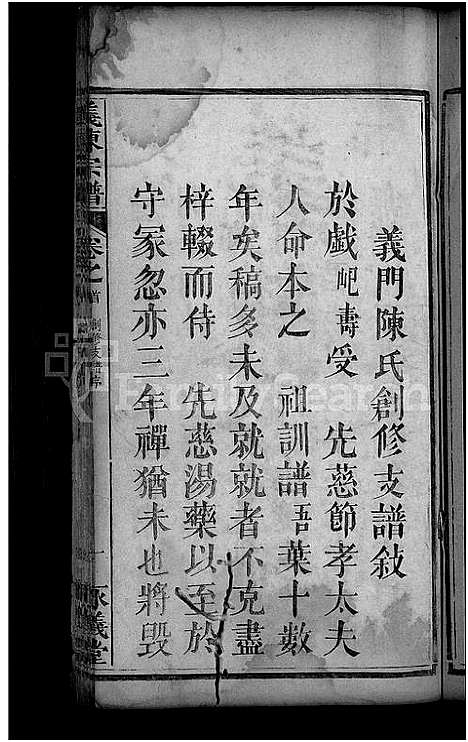 義門陳氏創修支譜敍
於戲屺壽受 先慈節孝太夫
人命本之 祖訓譜吾葉十數
年矣稿多未及就就者不克盡
梓輟而侍 先慈湯藥以至於
守冢忽亦三年禫猶未也將毀
義陳宗譜 卷之首 創修支譜序 一 義堂
FamilySearch